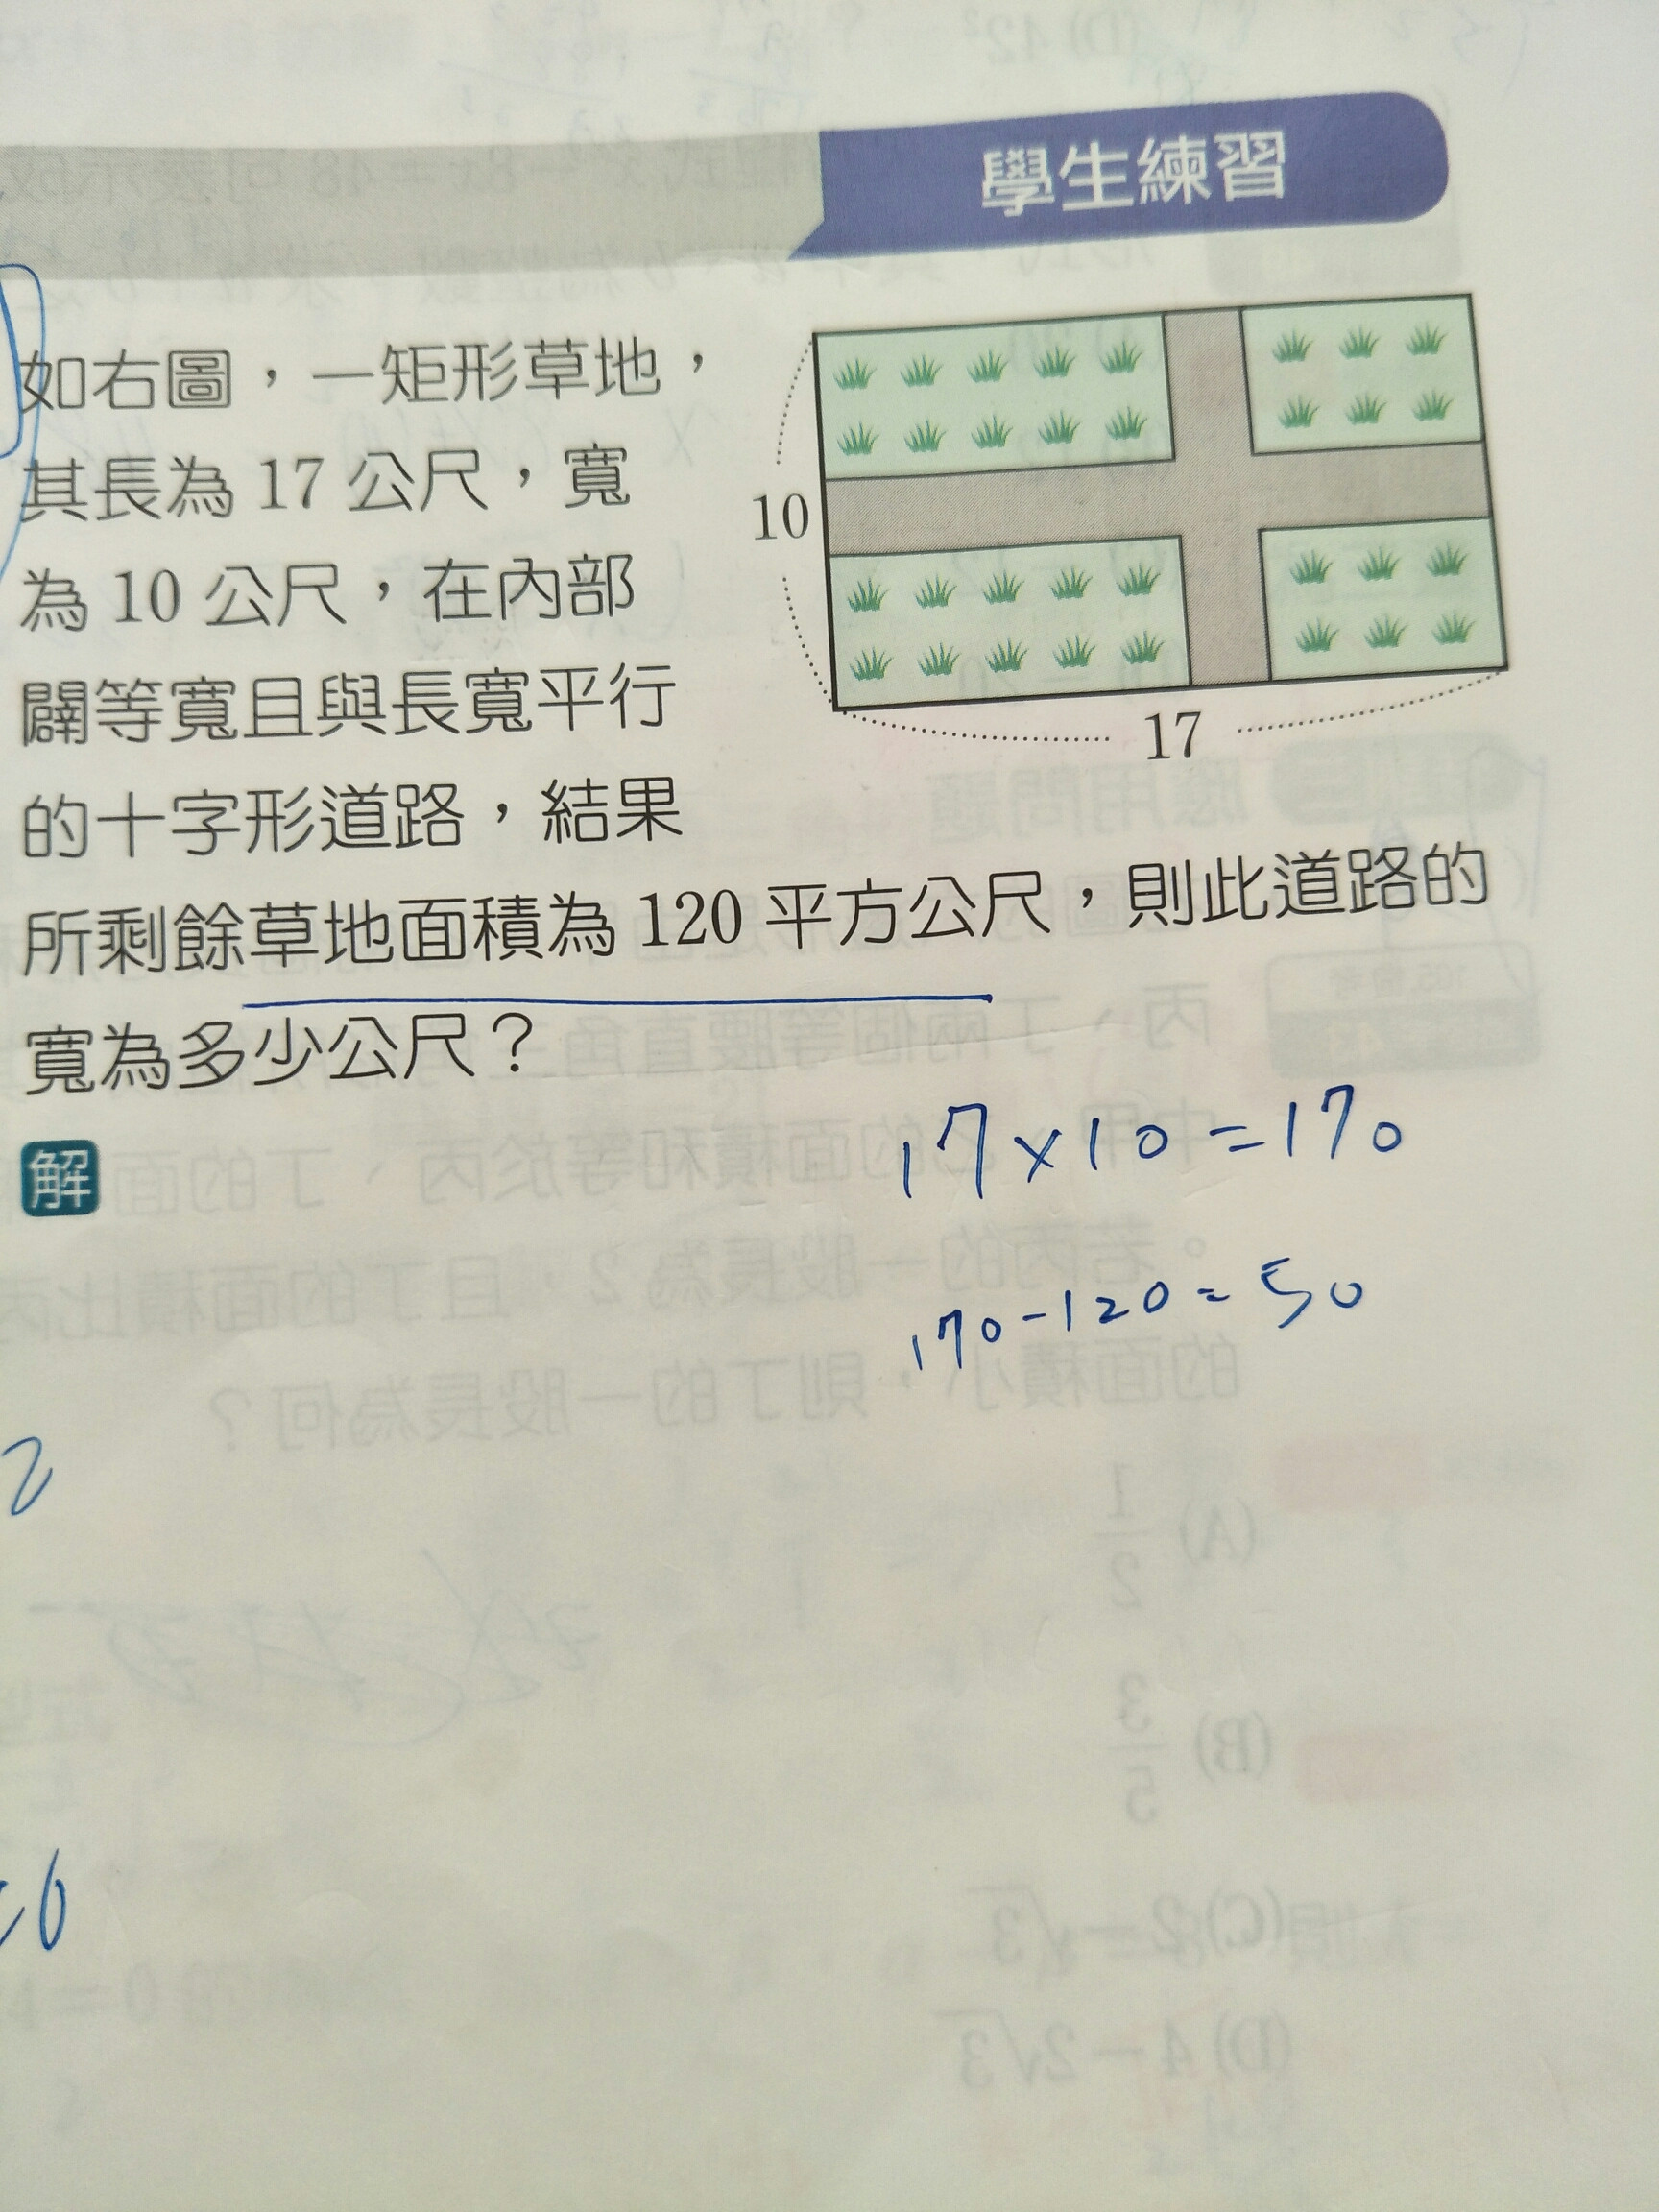 學生練習
如右圖，一矩形草地，
其長為 17 公尺，寬
為 10 公尺，在內部
闢等寬且與長寬平行
的十字形道路，結果
所剩餘草地面積為 120 平方公尺，則此道路的
寬為多少公尺？
10
17
解
17×10=170
170-120=50
2